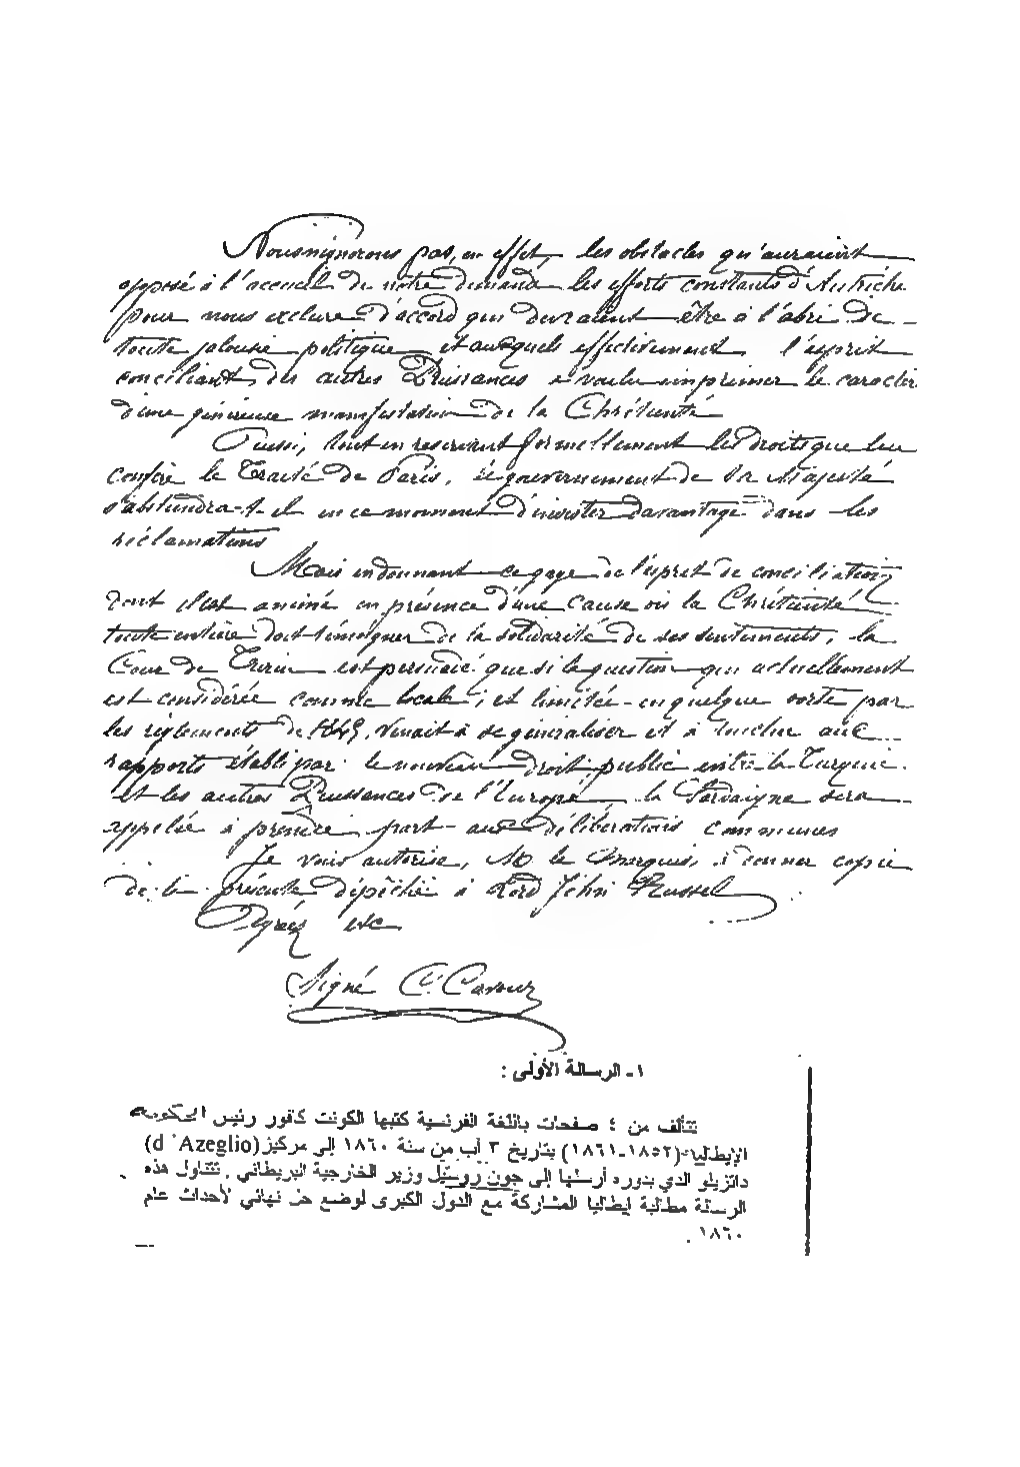 Nous n'ignorons pas, en effet, les obstacles qu'auraient
opposé à l'accueil de notre demande les efforts constants d'Autriche
pour nous exclure d'accord qui devraient être à l'abri de
toute jalousie politique et auxquels effectivement l'esprit
conciliant des autres Puissances a voulu imprimer le caractère
d'une généreuse manifestation de la Chrétienté
Aussi, tout en reservant formellement les droits que leur
confère le Traité de Paris, le gouvernement de Sa Majesté
s'abstiendra-t-il en ce moment d'insister davantage dans les
réclamations
Mais en donnant ce gage de l'esprit de conciliation
dont il est animé en présence d'une cause où la Chrétienté
toute entière doit témoigner de la solidarité de ses sentiments, la
Cour de Turin est persuadé que si la question qui actuellement
est considérée comme locale, et limitée en quelque sorte par
les règlements de 1845, venait à se généraliser et à toucher aux
rapports établi par le nouveau droit public entre la Turquie
et les autres Puissances de l'Europe, la Sardaigne sera
appelée à prendre part aux délibérations communes
Je vous autorise, M le Marquis, à donner copie
de la présente dépêche à Lord John Russel
Agréez etc
Signé C. Cavour
١- الرسالة الأولى :
تتألف من ٤ صفحات باللغة الفرنسية كتبها الكونت كافور رئيس الحكومة
الإيطالية (١٨٥٢-١٨٦١) بتاريخ ٣ آب من سنة ١٨٦٠ إلى مركيز (d'Azeglio)
داتزيلو الذي بدوره أرسلها إلى جون روسيل وزير الخارجية البريطاني . تتناول هذه
الرسالة مطالبة إيطاليا المشاركة مع الدول الكبرى لوضع حل نهائي لأحداث عام
١٨٦٠ .